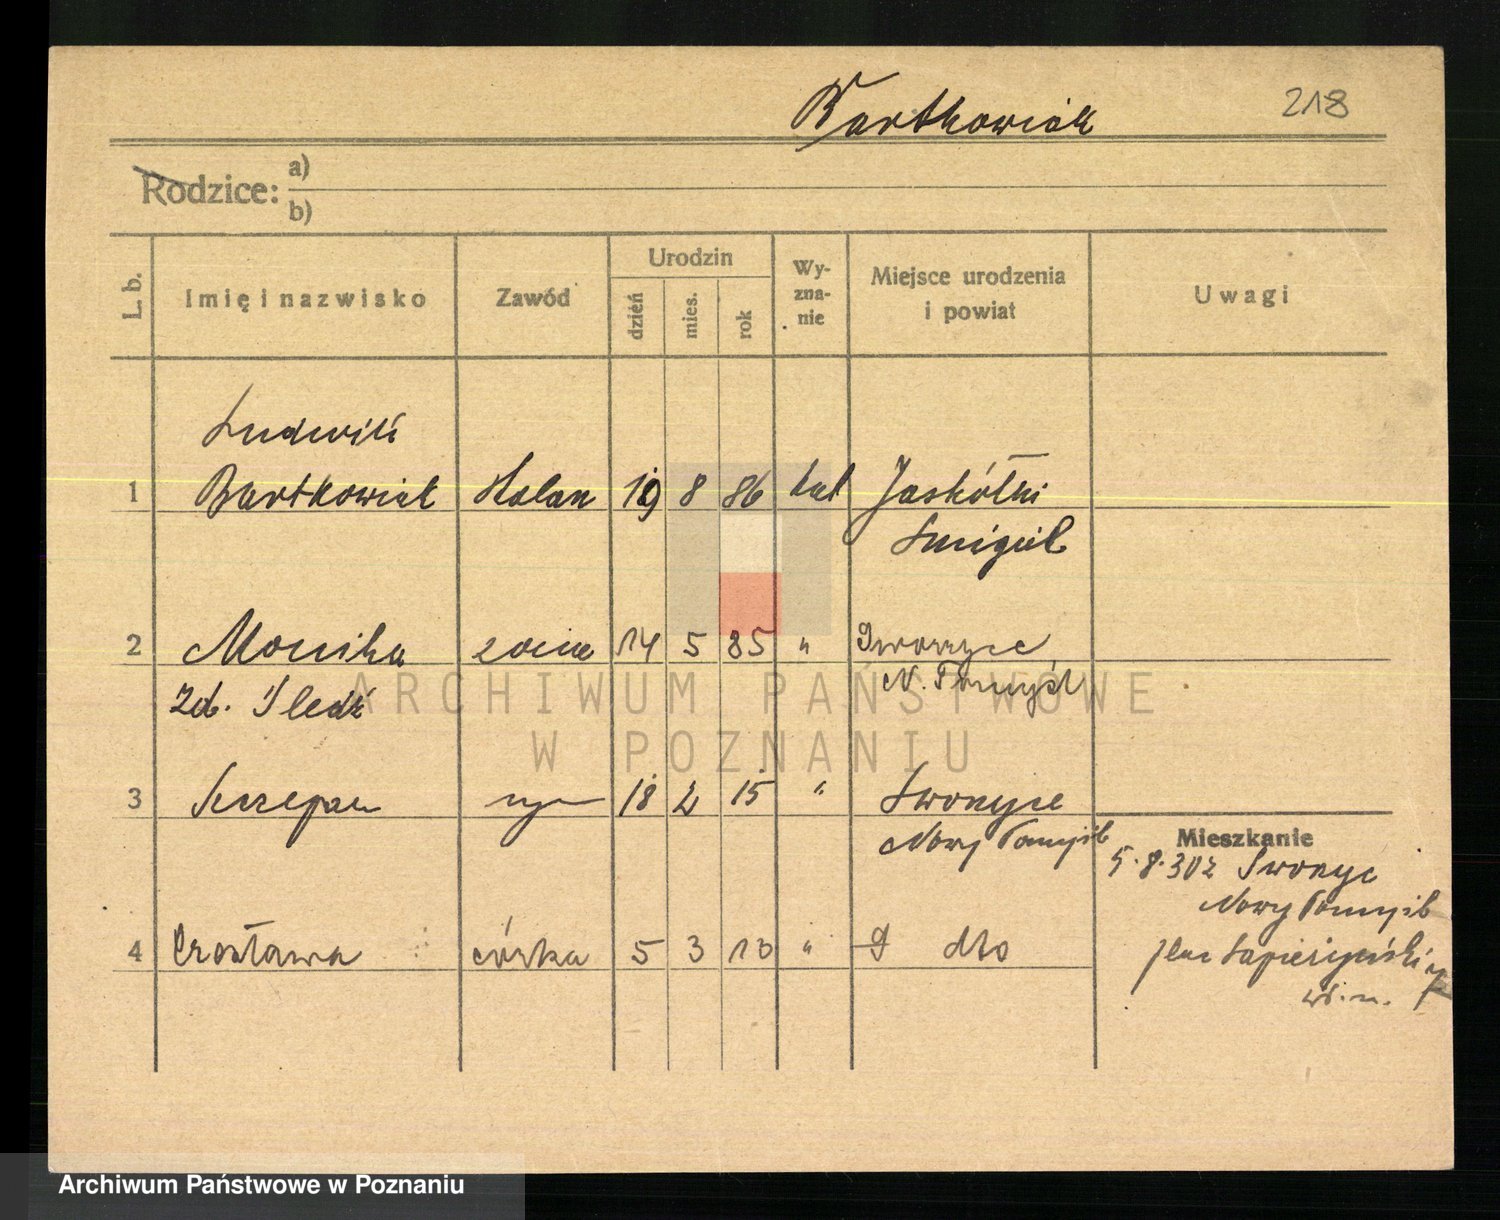 Bartkowiak 218
Rodzice: a)
b)
L. b.
Imię i nazwisko
Zawód
Urodzin
dzień
mies.
rok
Wy-
zna-
nie
Miejsce urodzenia
i powiat
Uwagi
Ludwik
1 Bartkowiak 19 8 86 kat Jaskółki
Śmigiel
2 Monika żona 14 5 85 "
N. Tomyśl
Zd. Śledź
3 Szczepan syn 18 2 15 "
Nowy Tomyśl
Mieszkanie
5.8.30z
Nowy Tomyśl
4 córka 5 3 13 " dto
plac Sapieżyński
ARCHIWUM PAŃSTWOWE
W POZNANIU
Archiwum Państwowe w Poznaniu